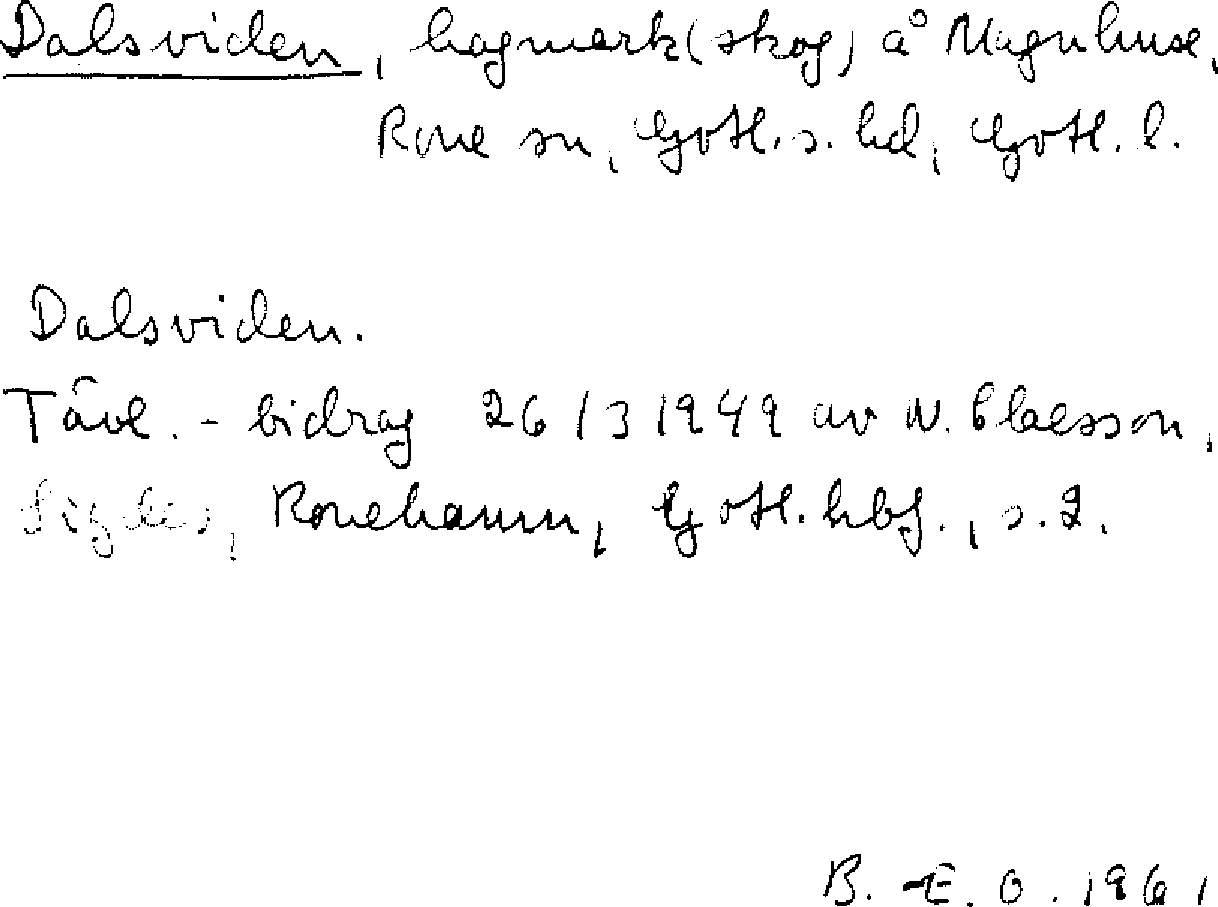 Dalsviden, hagmark (skog) å Magnhuse,
Rone sn, Gotl. s. hd, Gotl. l.
Dalsviden.
Tävl. - bidrag 26/3 1949 av N. Claesson,
Sigdes, Ronehamn, Gotl. hbf., s. 2.
B. E. O. 1961